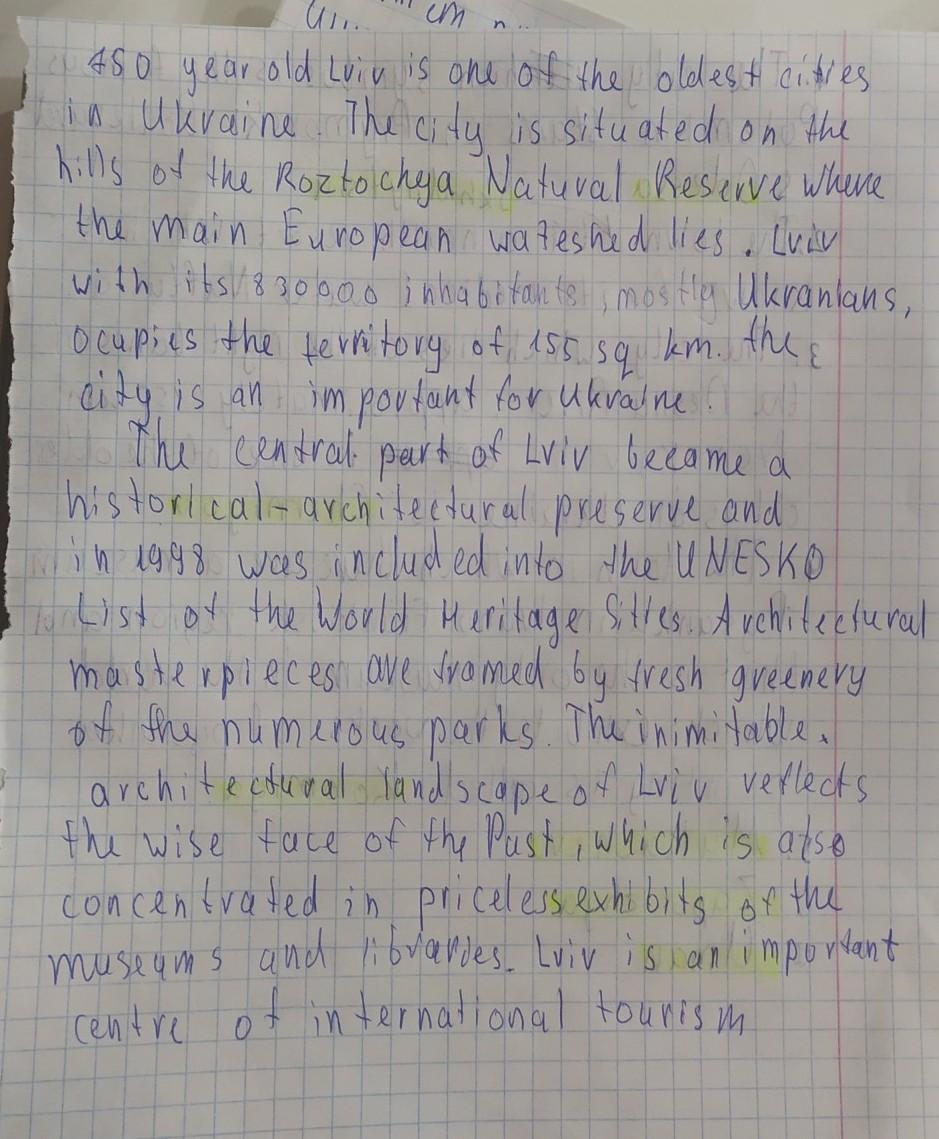 450 year old Lviv is one of the oldest cities
in Ukraine. The city is situated on the
hills of the Roztochya Natural Reserve where
the main European wateshed lies. Lviv
with its 830000 inhabitants, mostly Ukranians,
ocupies the territory of 155 sq km. the
city is an important for Ukraine.
The central part of Lviv became a
historical-architectural preserve and
in 1998 was included into the UNESKO
List of the World Heritage Sittes. Architectural
masterpieces are framed by fresh greenery
of the numerous parks. The inimitable.
architectural landscape of Lviv reflects
the wise face of the Past, which is also
concentrated in priceless exhibits of the
museums and libraries. Lviv is an important
centre of international tourism